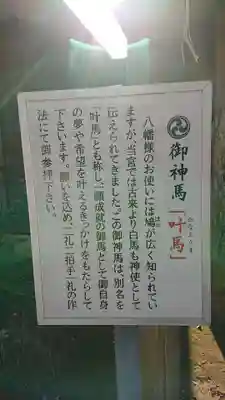 御神馬「叶馬」
かなえうま
八幡様のお使いには鳩が広く知られてい
はと
ますが、当宮では古来より白馬も神使として
伝えられてきました。この御神馬は、別名を
「叶馬」とも称し、心願成就の御馬として御自身
の夢や希望を叶えるきっかけをもたらして
下さいます。願いを込め、二礼二拍手一礼の作
法にて御参拝下さい。